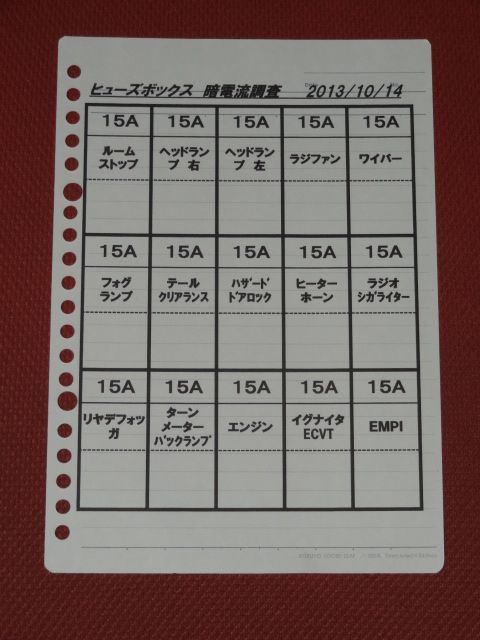 ヒューズボックス 暗電流調査 2013/10/14
15A 15A 15A 15A 15A
ルーム ストップ
ヘッドランプ 右
ヘッドランプ 左
ラジファン
ワイパー
15A 15A 15A 15A 15A
フォグ ランプ
テール クリアランス
ハザード ドアロック
ヒーター ホーン
ラジオ シガライター
15A 15A 15A 15A 15A
リヤデフォッガ
ターン メーター バックランプ
エンジン
イグナイタ ECVT
EMPI